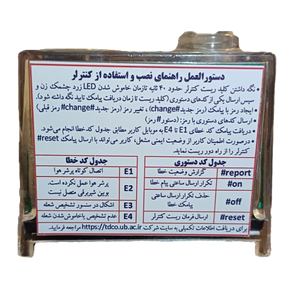 دستورالعمل راهنمای نصب و استفاده از کنترلر
• نگه داشتن کلید ریست کنترلر حدود ۴۰ ثانیه تا زمان خاموش شدن LED زرد چشمک زن و
سپس ارسال یکی از کدهای دستوری (کلید ریست تا زمان دریافت پیامک تایید نگه داشته شود).
• ایجاد رمز با پیامک (رمز جدید#change)، تغییر رمز (رمز جدید#change# رمز قبلی)
و ارسال کدهای دستوری با رمز: (دستور# رمز)
• دریافت پیامک کد خطای E1 تا E4 به موبایل کاربر مطابق جدول کد خطا انجام می‌شود.
• درصورت اطمینان کاربر از وضعیت ایمنی مشعل، کاربر می‌تواند با ارسال پیامک reset#
کنترلر را از راه دور ریست نماید.
جدول کد دستوری
#report گزارش وضعیت خطا
#on تکرار ارسال ساعتی پیام خطا
#off حذف تکرار ارسال ساعتی پیامک خطا
#reset ارسال فرمان ریست کنترلر
جدول کد خطا
E1 اتصال کوتاه پرشر هوا
E2 پرشر هوا عمل نکرده است.
بوبین شیربرقی متصل نیست
E3 اشکال در سنسور تشخیص شعله
E4 عدم تشخیص یا خاموش شدن شعله
برای دریافت اطلاعات تکمیلی به سایت شرکت https://tdco.ub.ac.ir مراجعه فرمایید.